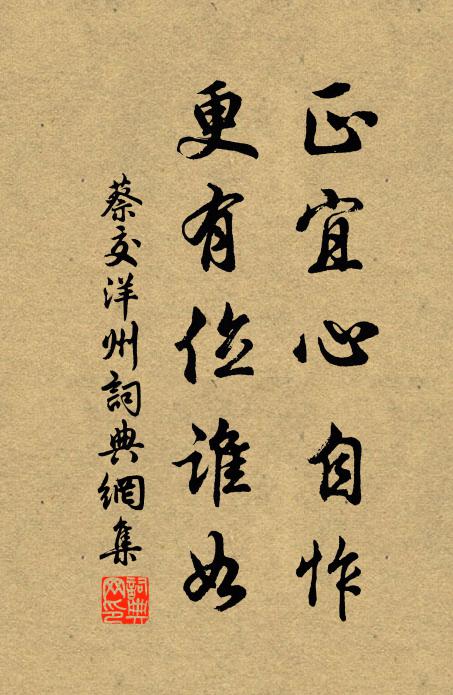 正宜心自怍
更有位誰如
蔡交洋州詞典網集
詞典网印